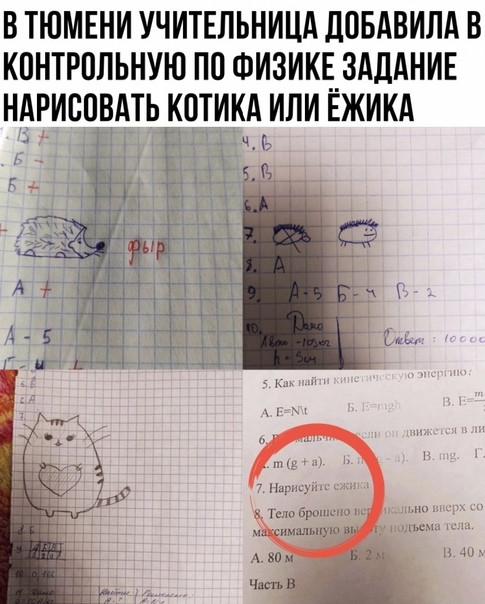 В ТЮМЕНИ УЧИТЕЛЬНИЦА ДОБАВИЛА В
КОНТРОЛЬНУЮ ПО ФИЗИКЕ ЗАДАНИЕ
НАРИСОВАТЬ КОТИКА ИЛИ ЁЖИКА
В +
Б -
Б +
фыр
А +
А - 5
4. В
5. В
6. А
7.
8. А
9. А-5 Б-4 В-2
10. Дано
h = 5см
Ответ : 10000
6. А
7.
8. Б
5. Как найти кинетическую энергию?
А. E=N\t Б. E=mgh В. E=
6. если он движется в ли
m (g + a). Б. - a). В. mg. Г.
7. Нарисуйте ежика
8. Тело брошено вертикально вверх со
максимальную высоту подъема тела.
А. 80 м Б. 2 м В. 40 м
Часть В